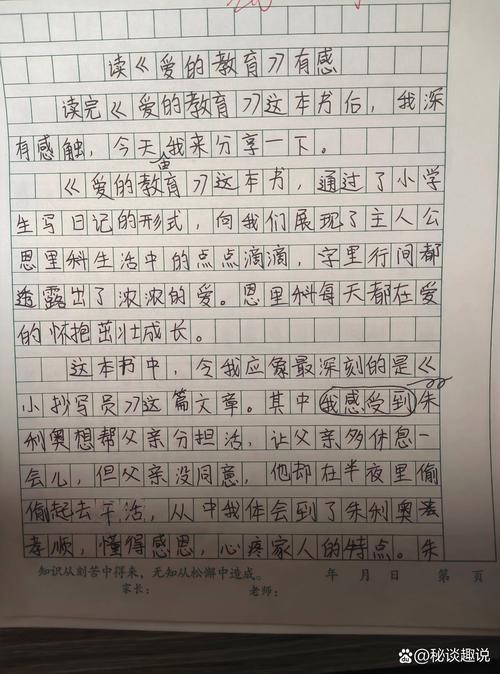 读《爱的教育》有感
读完《爱的教育》这本书后，我深
有感触，今天我来分享一下。
《爱的教育》这本书，通过了小学
生写日记的形式，向我们展现了主人公
恩里科生活中的点点滴滴，字里行间都
透露出了浓浓的爱。恩里科每天都在爱
的怀抱茁壮成长。
这本书中，令我应象最深刻的是《
小抄写员》这篇文章。其中我感受到朱
利奥想帮父亲分担活，让父亲多休息一
会儿，但父亲没同意，他却在半夜里偷
偷起去干活，从中我体会到了朱利奥
孝顺，懂得感恩，心疼家人的特点。朱
知识从刻苦中得来，无知从松懈中造成。 年 月 日 第 页
家长： 老师：
@秘谈趣说